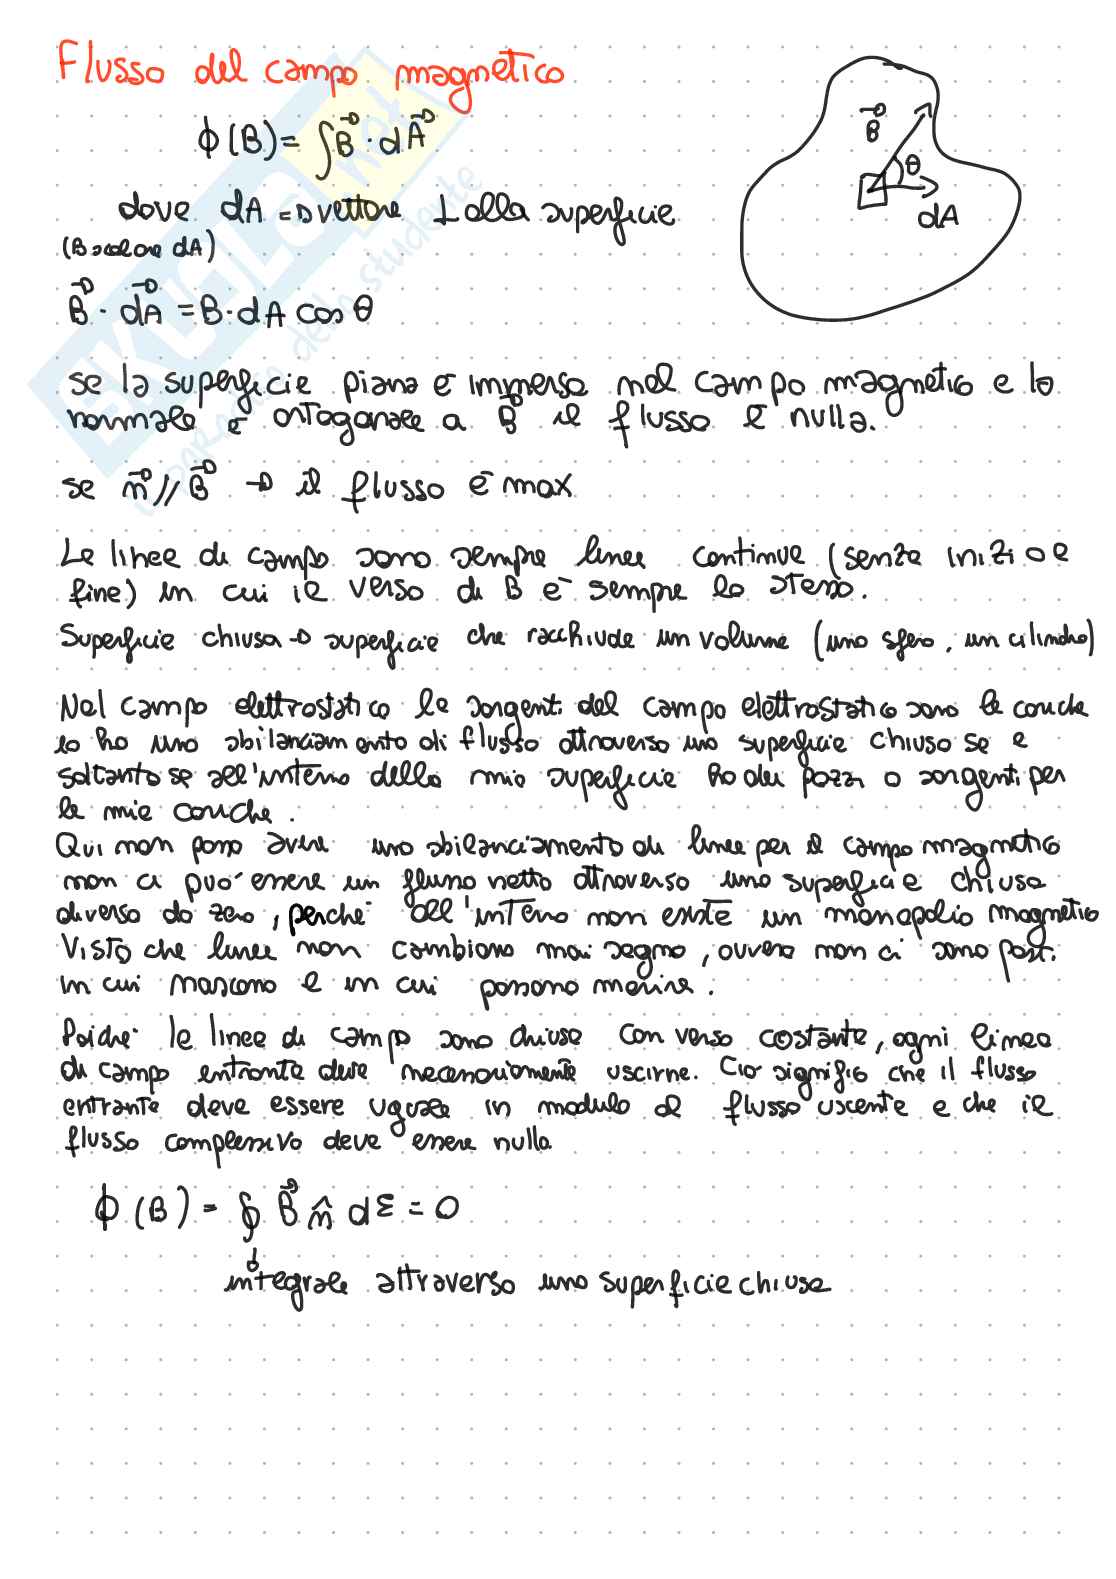 Flusso del campo magnetico
ϕ(B) = ∫ B⃗ · dA⃗
dove dA ⇒ vettore ⊥ alla superficie
(B scalare dA)
B⃗ · dA⃗ = B · dA cos θ
B⃗
θ
dA
se la superficie piana è immersa nel campo magnetico e la
normale è ortogonale a B⃗ il flusso è nulla.
se n⃗ // B⃗ → il flusso è max
Le linee di campo sono sempre linee continue (senza inizio e
fine) in cui il verso di B è sempre lo stesso.
Superficie chiusa → superficie che racchiude un volume (una sfera, un cilindro)
Nel campo elettrostatico le sorgenti del campo elettrostatico sono le cariche
io ho uno sbilanciamento di flusso attraverso una superficie chiusa se e
soltanto se all'interno della mia superficie ho dei pozzi o sorgenti per
le mie cariche.
Qui non posso avere uno sbilanciamento di linee per il campo magnetico
non ci può essere un flusso netto attraverso una superficie chiusa
diverso da zero, perché all'interno non existe un monopolio magnetico
Visto che linee non cambiano mai segno, ovvero non ci sono posti
in cui nascono e in cui possono morire.
Poiché le linee di campo sono chiuse con verso costante, ogni linea
di campo entrante deve necessariamente uscirne. Ciò significa che il flusso
entrante deve essere uguale in modulo al flusso uscente e che il
flusso complessivo deve essere nulla
ϕ (B) = ∮ B⃗ n̂ dΣ = 0
↓
integrale attraverso una superficie chiusa
SKUOLA.net